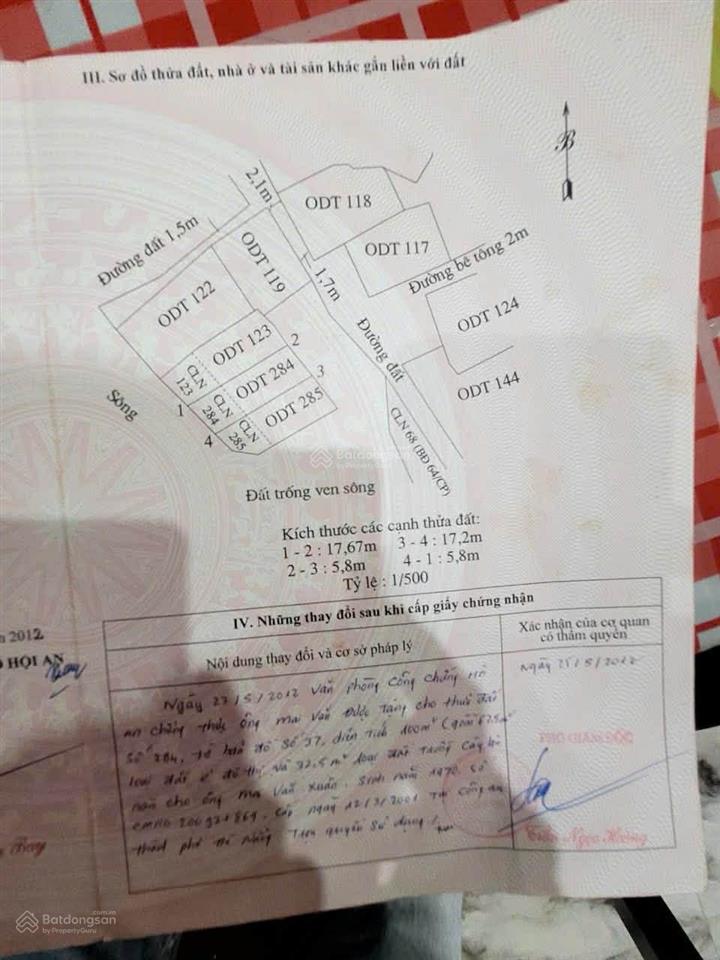 III. Sơ đồ thửa đất, nhà ở và tài sản khác gắn liền với đất
B
2,1m
ODT 118
Đường đất 1,5m
ODT 119
ODT 117
1,7m
Đường bê tông 2m
ODT 122
ODT 124
ODT 123
2
Đường đất
CLN 123
ODT 284
3
ODT 144
Sông
1
CLN 284
ODT 285
4
CLN 285
CLN 68 (BĐ 64/CP)
Batdongsan
by PropertyGuru
Đất trống ven sông
Kích thước các cạnh thửa đất:
1 - 2 : 17,67m 3 - 4 : 17,2m
2 - 3 : 5,8m 4 - 1 : 5,8m
Tỷ lệ : 1/500
2012
HỘI AN
IV. Những thay đổi sau khi cấp giấy chứng nhận
Nội dung thay đổi và cơ sở pháp lý
Xác nhận của cơ quan có thẩm quyền
Ngày 23/5/2012 Văn phòng Công chứng Hội
an chứng thực ông Mai Văn Được tặng cho thửa đất
Số 284, tờ bản đồ số 37, diện tích 100m² (gồm 67.5m²
loại đất ở đô thị và 32.5m² loại đất trồng cây lâu
năm cho ông Mai Văn Xuân. Sinh năm 1970. Số
CMND Cấp ngày 12/3/2001 Tại Công an
thành phố Đà Nẵng Trọn quyền sử dụng
Ngày 25/5/2012
PHÓ GIÁM ĐỐC
Trần Ngọc
Batdongsan
.com.vn
by PropertyGuru